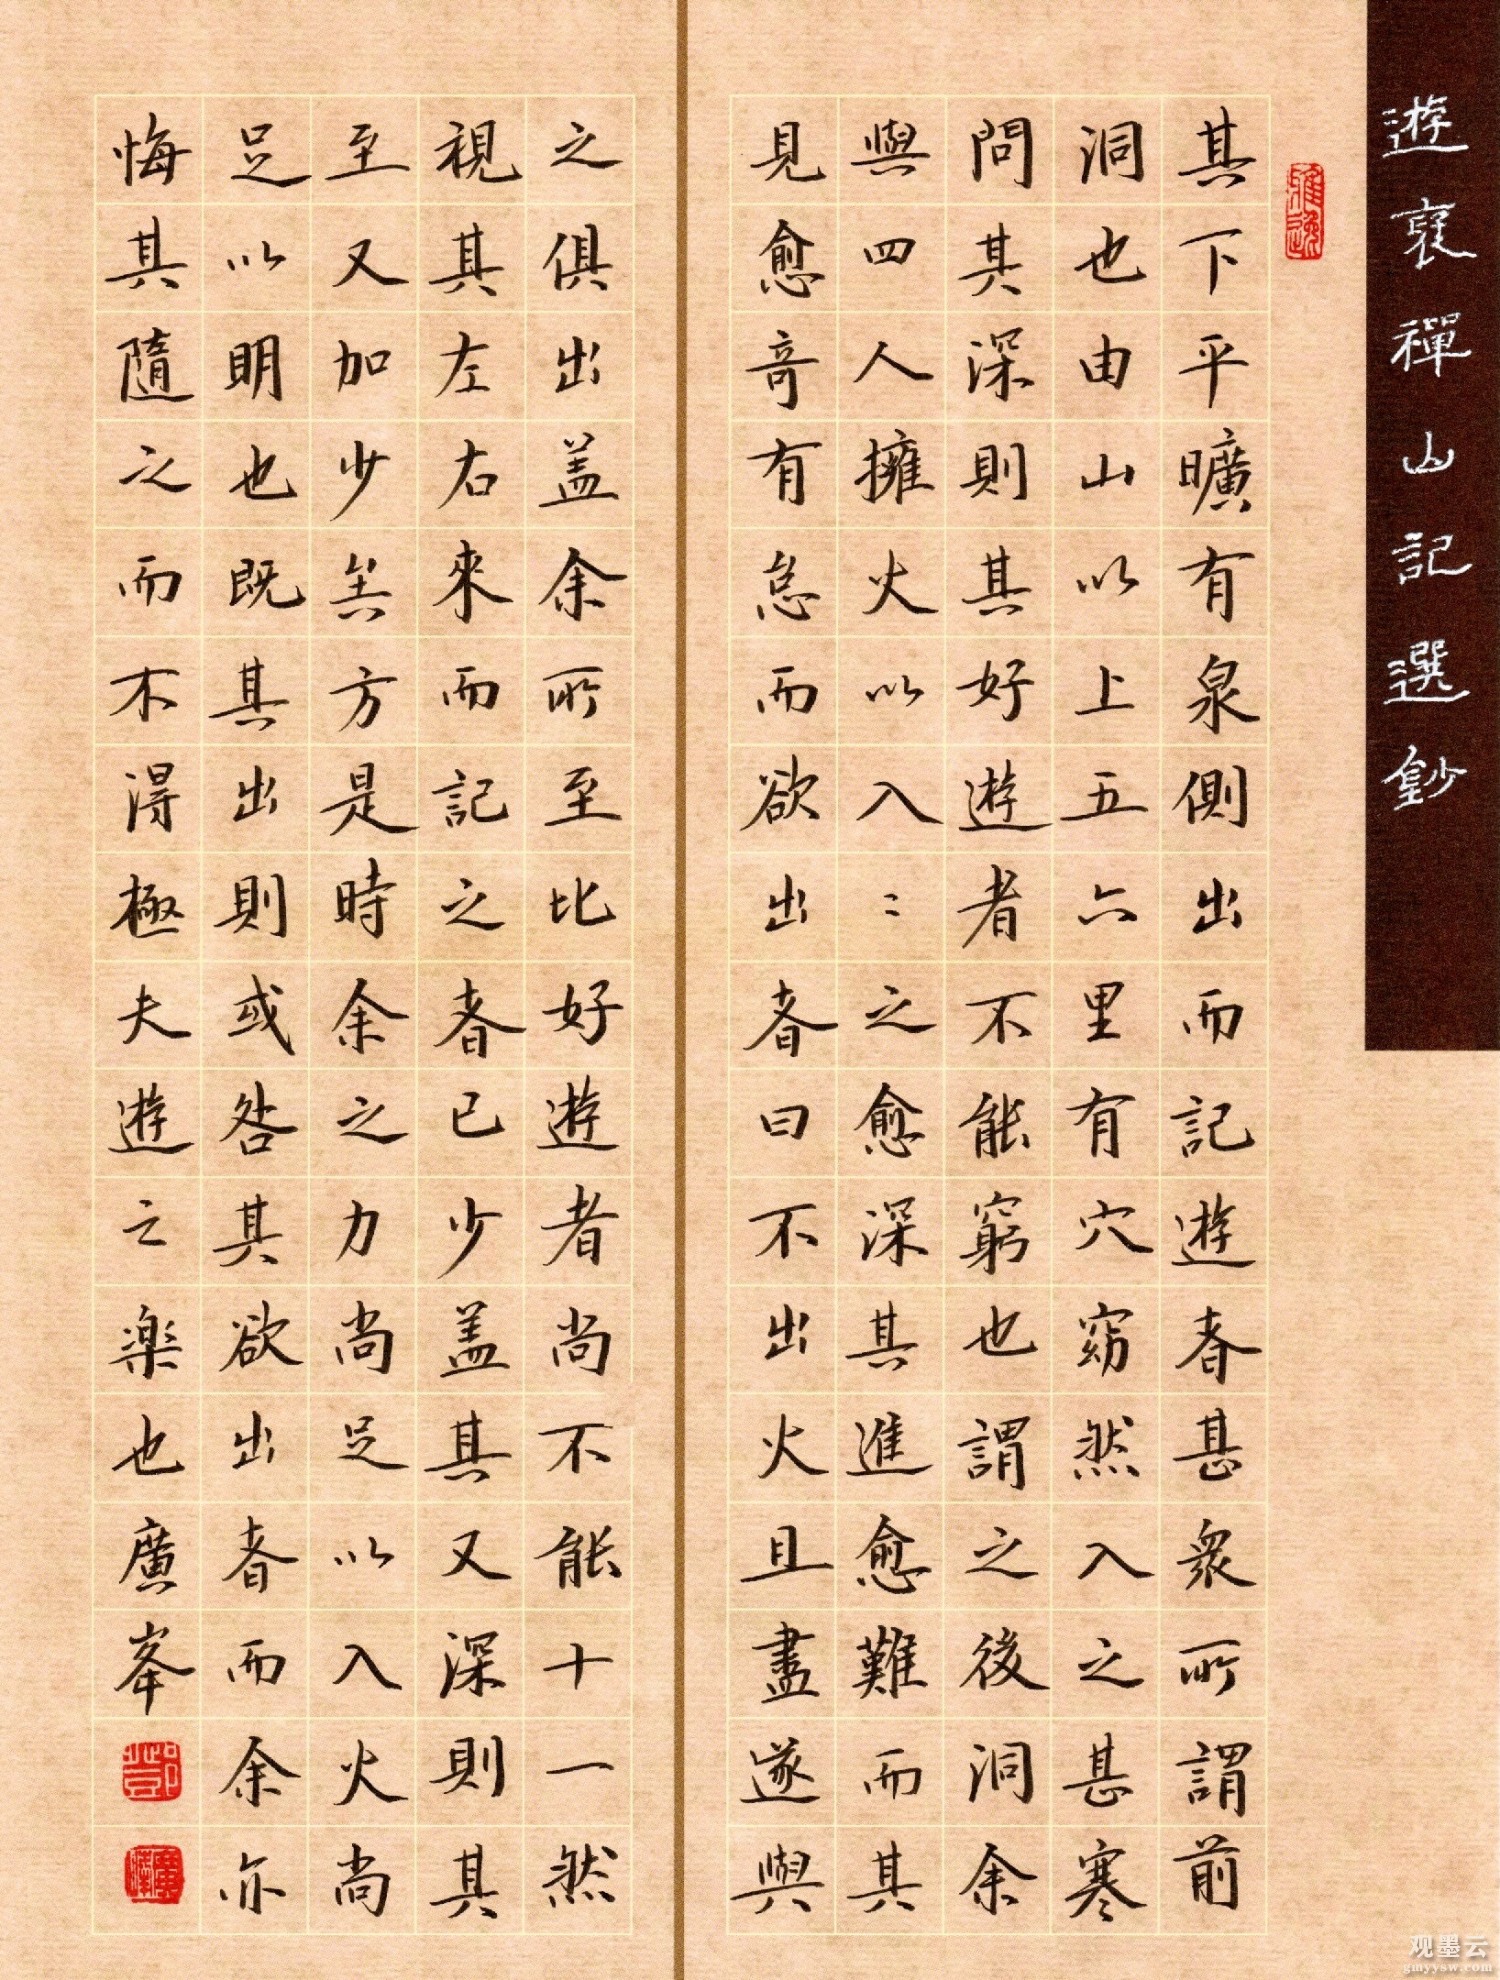 遊褒禪山記選鈔
雅逸
其下平曠有泉側出而記遊者甚衆所謂前
洞也由山以上五六里有穴窈然入之甚寒
問其深則其好遊者不能窮也謂之後洞余
與四人擁火以入〻之愈深其進愈難而其
見愈奇有怠而欲出者曰不出火且盡遂與
之俱出盖余所至比好遊者尚不能十一然
視其左右來而記之者已少盖其又深則其
至又加少矣方是時余之力尚足以入火尚
足以明也既其出則或咎其欲出者而余亦
悔其隨之而不得極夫遊之楽也廣峯
观墨云
gmyysw.com